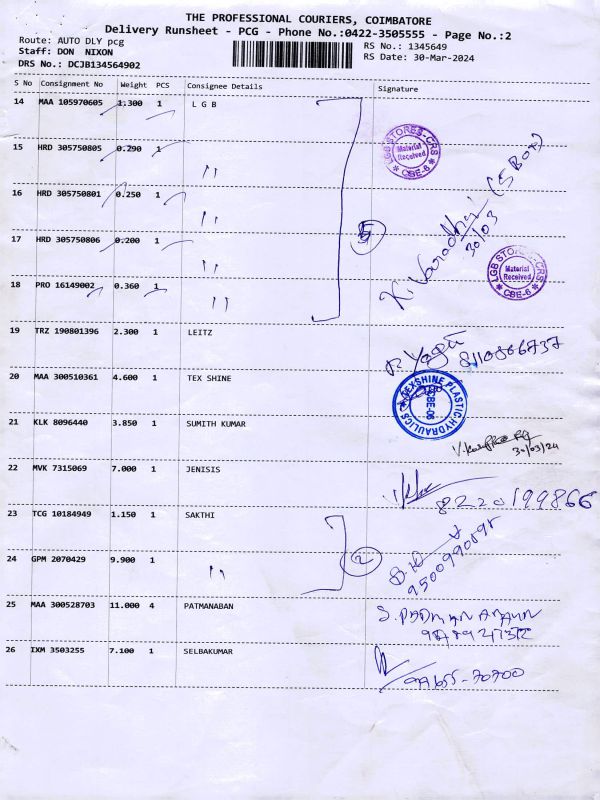 THE PROFESSIONAL COURIERS, COIMBATORE
Delivery Runsheet - PCG - Phone No.:0422-3505555 - Page No.:2
Route: AUTO DLY pcg
RS No.: 1345649
Staff: DON NIXON
RS Date: 30-Mar-2024
DRS No.: DCJB134564902
S No Consignment No Weight PCS Consignee Details Signature
14 MAA 105970605 1.300 1 L G B
LGB STORES-CRS
Material Received
CBE-6
15 HRD 305750805 0.290 1 "
16 HRD 305750801 0.250 1 "
5
K. Varadhi
30/03
17 HRD 305750806 0.200 1 "
LGB STORES-CRS
Material Received
CBE-6
18 PRO 16149002 0.360 1 "
19 TRZ 190801396 2.300 1 LEITZ
20 MAA 300510361 4.600 1 TEX SHINE
TEXSHINE PLASTIC HYDRAULICS
CBE-06
21 KLK 8096440 3.850 1 SUMITH KUMAR
30/03/24
22 MVK 7315069 7.000 1 JENISIS
8220199866
23 TCG 10184949 1.150 1 SAKTHI
2
24 GPM 2070429 9.900 1 "
25 MAA 300528703 11.000 4 PATMANABAN
26 IXM 3503255 7.100 1 SELBAKUMAR
99655-70700